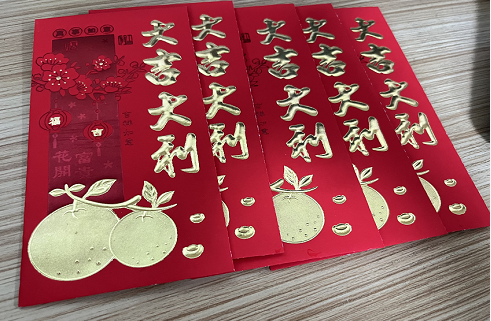 大吉大利
福
吉
富貴
花開
大吉大利
大吉大利
大吉大利
大吉大利